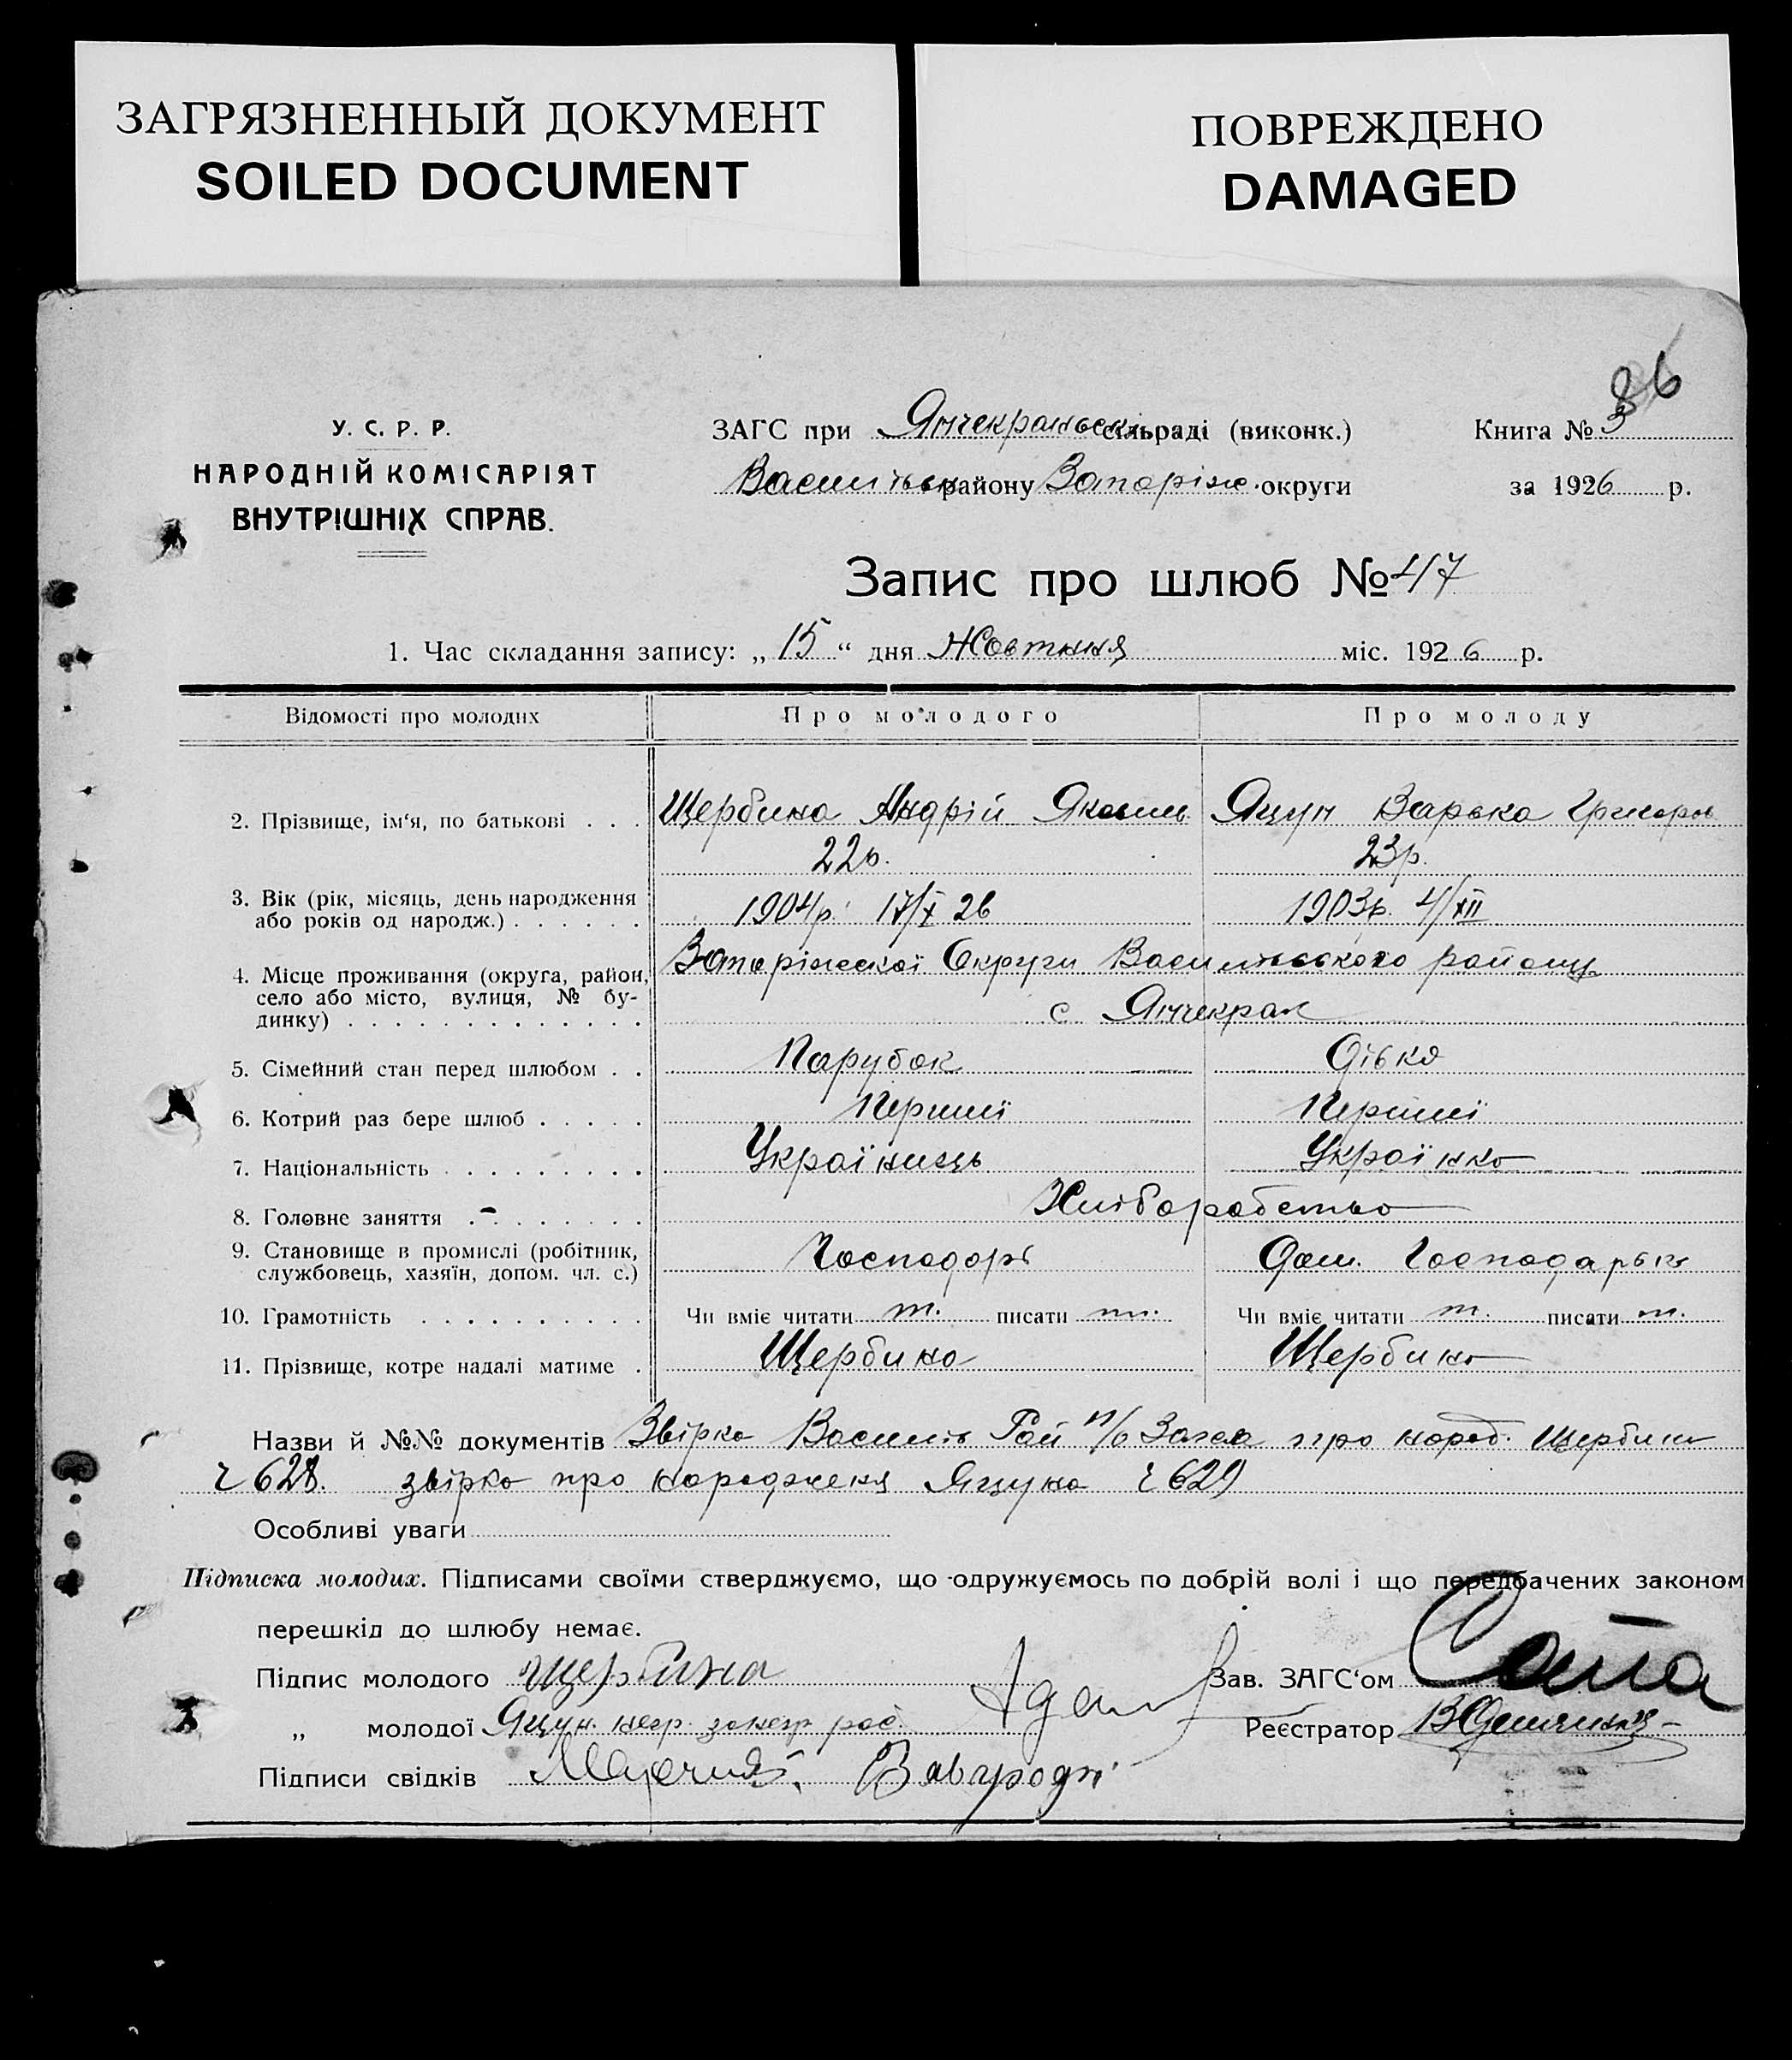 ЗАГРЯЗНЕННЫЙ ДОКУМЕНТ
SOILED DOCUMENT
ПОВРЕЖДЕНО
DAMAGED
86
У. С. Р. Р.
НАРОДНІЙ КОМІСАРІЯТ
ВНУТРІШНІХ СПРАВ.
ЗАГС при Янчекраньськ сільраді (виконк.)
Васильськ району Запоріж. округи
Книга № 3
за 1926 р.
Запис про шлюб № 47
1. Час складання запису: „ 15 “ дня Жовтння міс. 1926 р.
Відомості про молодих Про молодого Про молоду
2. Прізвище, ім‘я, по батькові . . . Щербина Андрій Якович Яцун Варька Григоров
22р. 23р.
3. Вік (рік, місяць, день народження або років од народж.) . . . . . . 1904р. 17/X 26 1903р. 4/XII
4. Місце проживання (округа, район, село або місто, вулиця, № будинку) . . . Запоріжської Округи Васильського району
с Янчекрак
5. Сімейний стан перед шлюбом . . Парубок Дівка
6. Котрий раз бере шлюб . . . . . Перший Перший
7. Національність . . . . . . . . . Українець Українка
8. Головне заняття . . . . . . . Хліборобство
9. Становище в промислі (робітник, службовець, хазяїн, допом. чл. с.) Господорь Дом. Господарька
10. Грамотність . . . . . . . . . . Чи вміє читати т. писати т. Чи вміє читати т. писати т.
11. Прізвище, котре надалі матиме . Щербина Щербина
Назви й №№ документів Звірка Василів Рай п/б Загса про народ. Щербини
ч 628. звірка про народженя Яцуна ч 629
Особливі уваги
Підписка молодих. Підписами своїми стверджуємо, що одружуємось по добрій волі і що передбачених законом
перешкід до шлюбу немає.
Підпис молодого Щербина
Зав. ЗАГС‘ом
„ молодої Яцун. негр.
Реєстратор
Підписи свідків